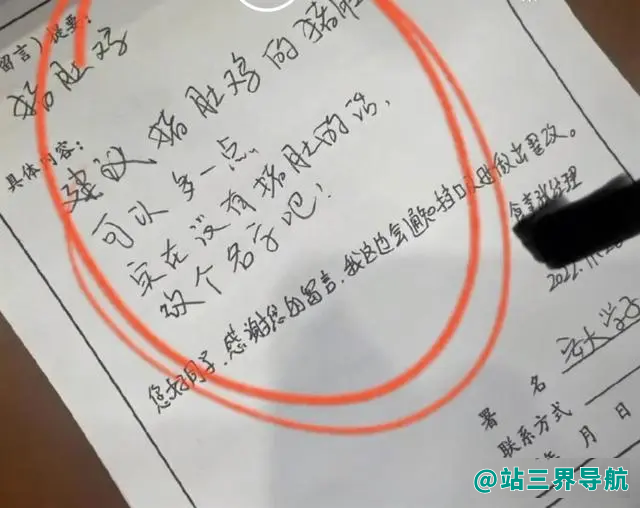 留言）提要：
猪肚鸡
具体内容：
建议猪肚鸡的猪肚
可以多一点
实在没有猪肚的话，
改个名字吧！
您好同学，感谢您的留言，我这边会通知档口及时做出整改。
食堂部经理
2022.11.28
署名 安大学子
联系方式
年 月 日
@站三界导航